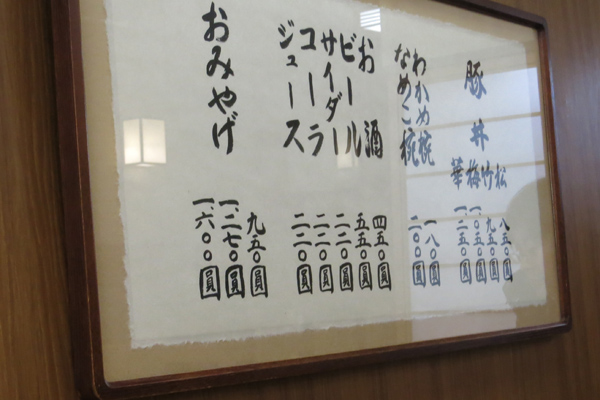 豚丼
松 八五〇圓
竹 九五〇圓
梅 一、〇五〇圓
華 一、二五〇圓
わかめ椀 一八〇圓
なめこ椀 二〇〇圓
お酒 四五〇圓
ビール 五五〇圓
サイダー 二二〇圓
コーラ 二二〇圓
ジュース 二二〇圓
おみやげ
九五〇圓
一、二七〇圓
一、六〇〇圓